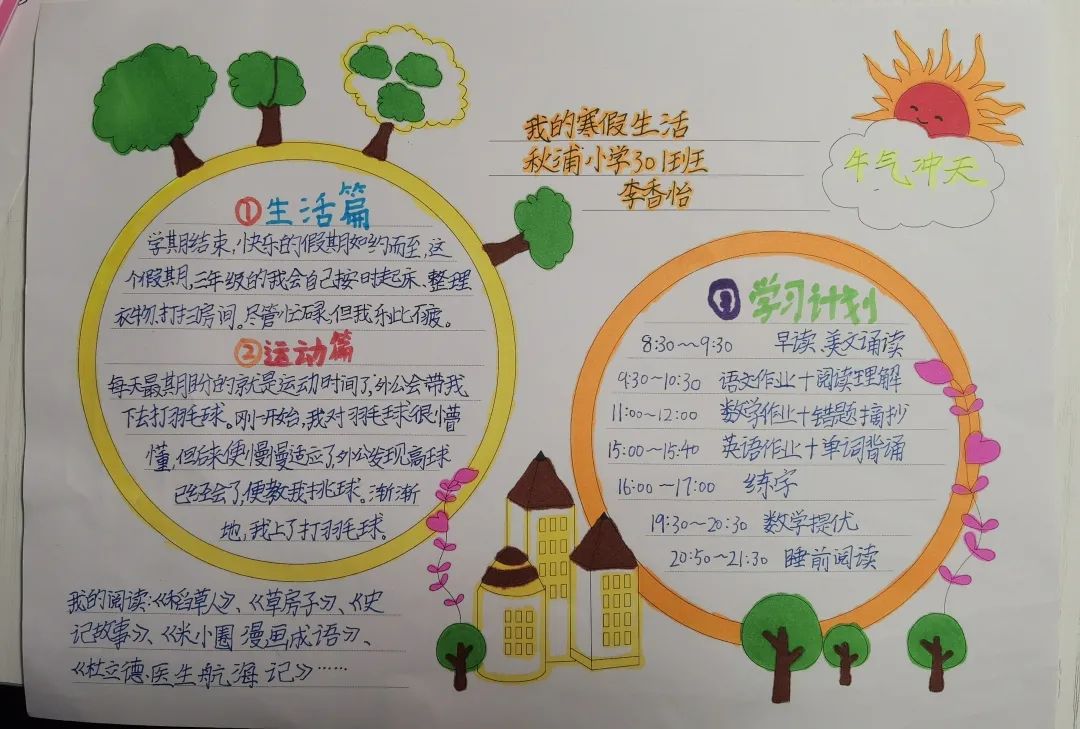 我的寒假生活
秋浦小学301班
李香怡
牛气冲天
①生活篇
学期结束,快乐的假期如约而至,这
个假期,三年级的我会自己按时起床、整理
衣物、打扫房间。尽管忙碌,但我乐此不疲。
②运动篇
每天最期盼的就是运动时间了,外公会带我
下去打羽毛球。刚开始,我对羽毛球很懵
懂,但后来便慢慢适应了,外公发现高球
已经会了,便教我挑球。渐渐
地,我上了打羽毛球。
我的阅读:《稻草人》、《草房子》、《史
记故事》、《米小圈漫画成语》、
《杜立德医生航海记》……
③学习计划
8:30~9:30 早读、美文诵读
9:30~10:30 语文作业+阅读理解
11:00~12:00 数学作业+错题摘抄
15:00~15:40 英语作业+单词背诵
16:00~17:00 练字
19:30~20:30 数学提优
20:50~21:30 睡前阅读